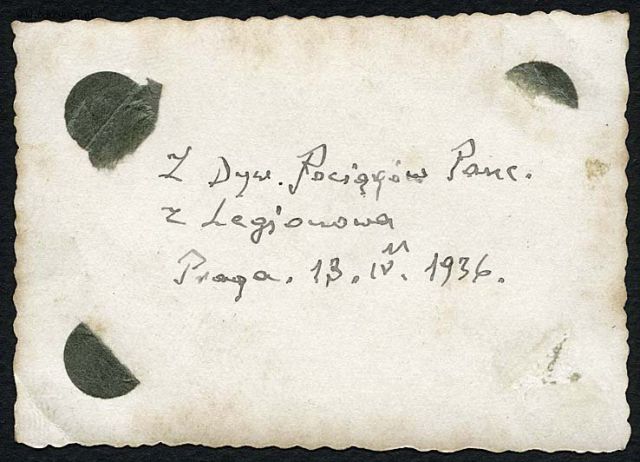 Z Dyw. Pociągów Panc.
z Legionowa
Praga. 13. IV. 1936.